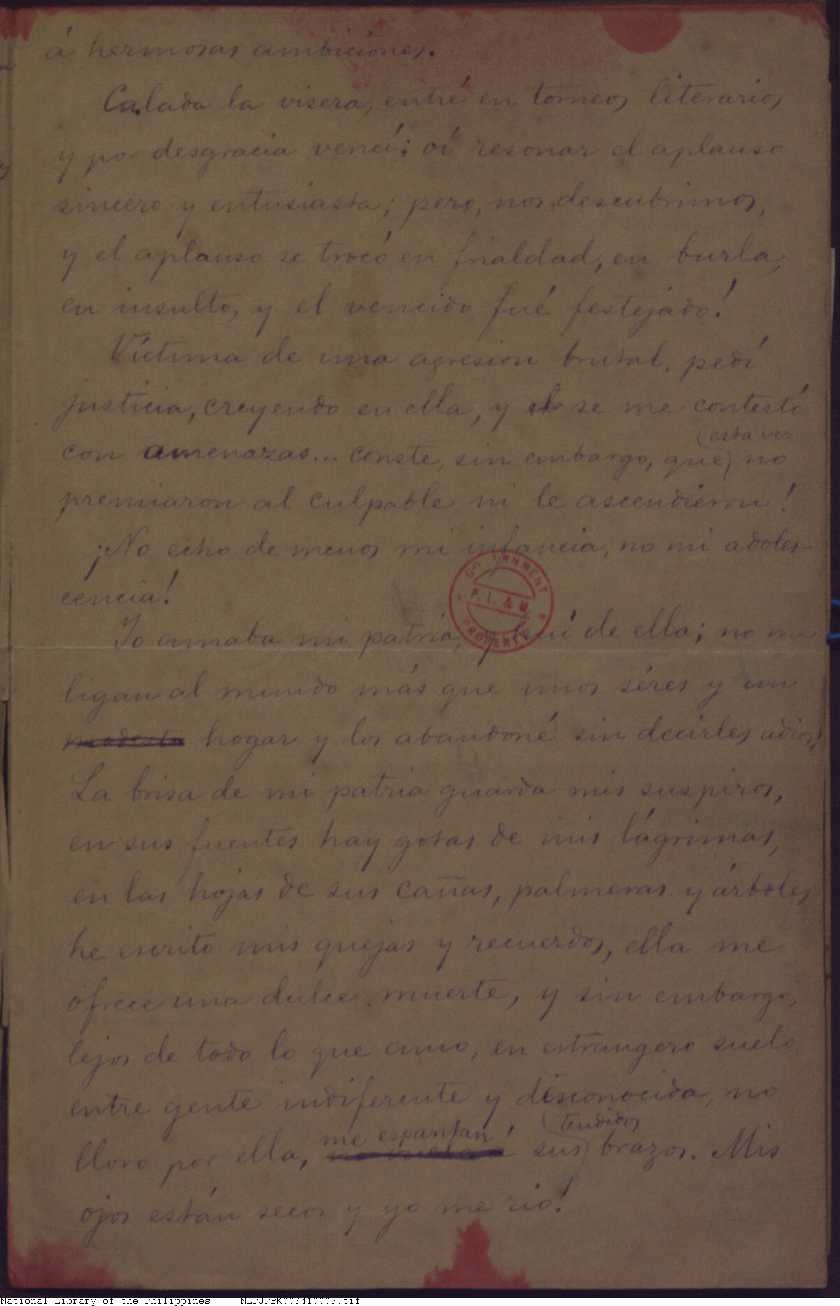 á hermosas ambiciones.
Calada la visera, entré en torneos literarios
y por desgracia vencí; oí resonar el aplauso
sincero y entusiasta; pero, nos descubrimos,
y el aplauso se trocó en frialdad, en burla,
en insulto, y el vencido fué festejado!
Víctima de una agresion brutal, pedí
justicia, creyendo en ella, y se me contestó
(esta vez
con amenazas... conste, sin embargo, que) no
premiaron al culpable ni le ascendieron!
¡No echo de menos mi infancia, no mi adoles-
cencia!
Yo amaba mi patria, y huí de ella; no me
ligan al mundo más que unos séres y un
modesto hogar y los abandoné sin decirles adios!
La brisa de mi patria guarda mis suspiros,
en sus fuentes hay gotas de mis lágrimas,
en las hojas de sus cañas, palmeras y árboles
he escrito mis quejas y recuerdos, ella me
ofrece una dulce muerte, y sin embargo,
lejos de todo lo que amo, en estrangero suelo,
entre gente indiferente y desconocida, no
(tendidos
me espantan
lloro por ella, sus) brazos. Mis
ojos están secos y yo me río!
GOVERNMENT
P. I. & M.
PROPERTY
National Library of the Philippines